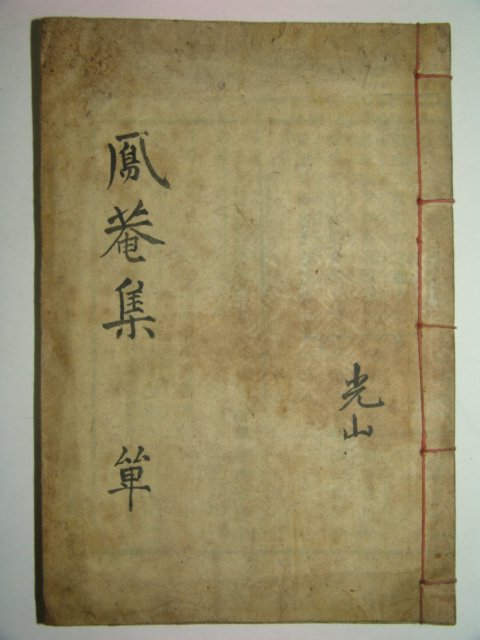 光山
鳳菴集 單